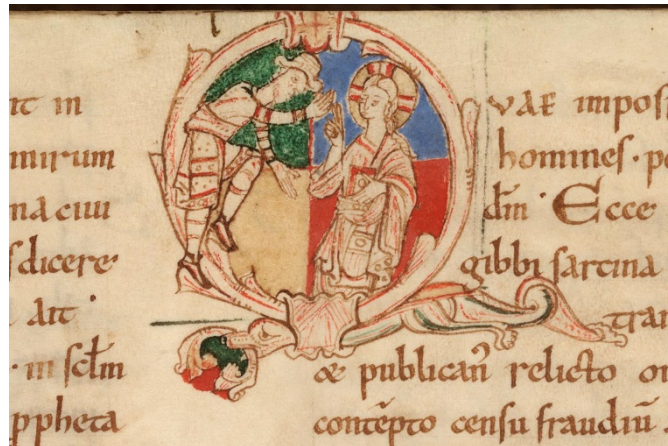 nt in
mirum
na ciui
s dicere
ait ·
· in scl̄m
ppheta
QVAE impos
homines · pe
dm̄ · Ecce
gibbi sarcina
tran
& publican̄ relicto
contēpto censu fraudiū